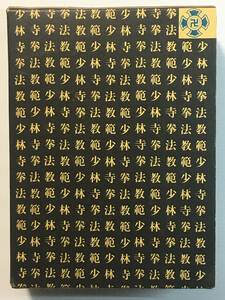 少林寺拳法教範少林寺
林寺拳法教範少林寺拳
寺拳法教範少林寺拳法教範少
拳法教範少林寺拳法教範少林
法教範少林寺拳法教範少林寺
教範少林寺拳法教範少林寺拳
範少林寺拳法教範少林寺拳法
少林寺拳法教範少林寺拳法教
林寺拳法教範少林寺拳法教範
寺拳法教範少林寺拳法教範少
拳法教範少林寺拳法教範少林
法教範少林寺拳法教範少林寺
教範少林寺拳法教範少林寺拳
範少林寺拳法教範少林寺拳法
少林寺拳法教範少林寺拳法教
林寺拳法教範少林寺拳法教範
寺拳法教範少林寺拳法教範少